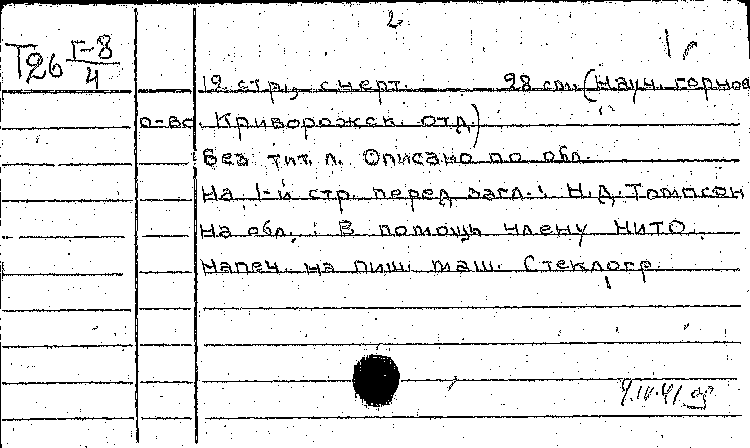 2
Т26 Г-8/4
12 стр., с черт. 28 см. (Науч. горное
о-во. Криворожск. отд.)
Без тит. л. Описано по обл.
На 1-й стр. перед загл.: Н.Д. Томпсон
На обл.: В помощь члену НИТО.
Напеч. на пиш. маш. Стеклогр.
9.IV.41